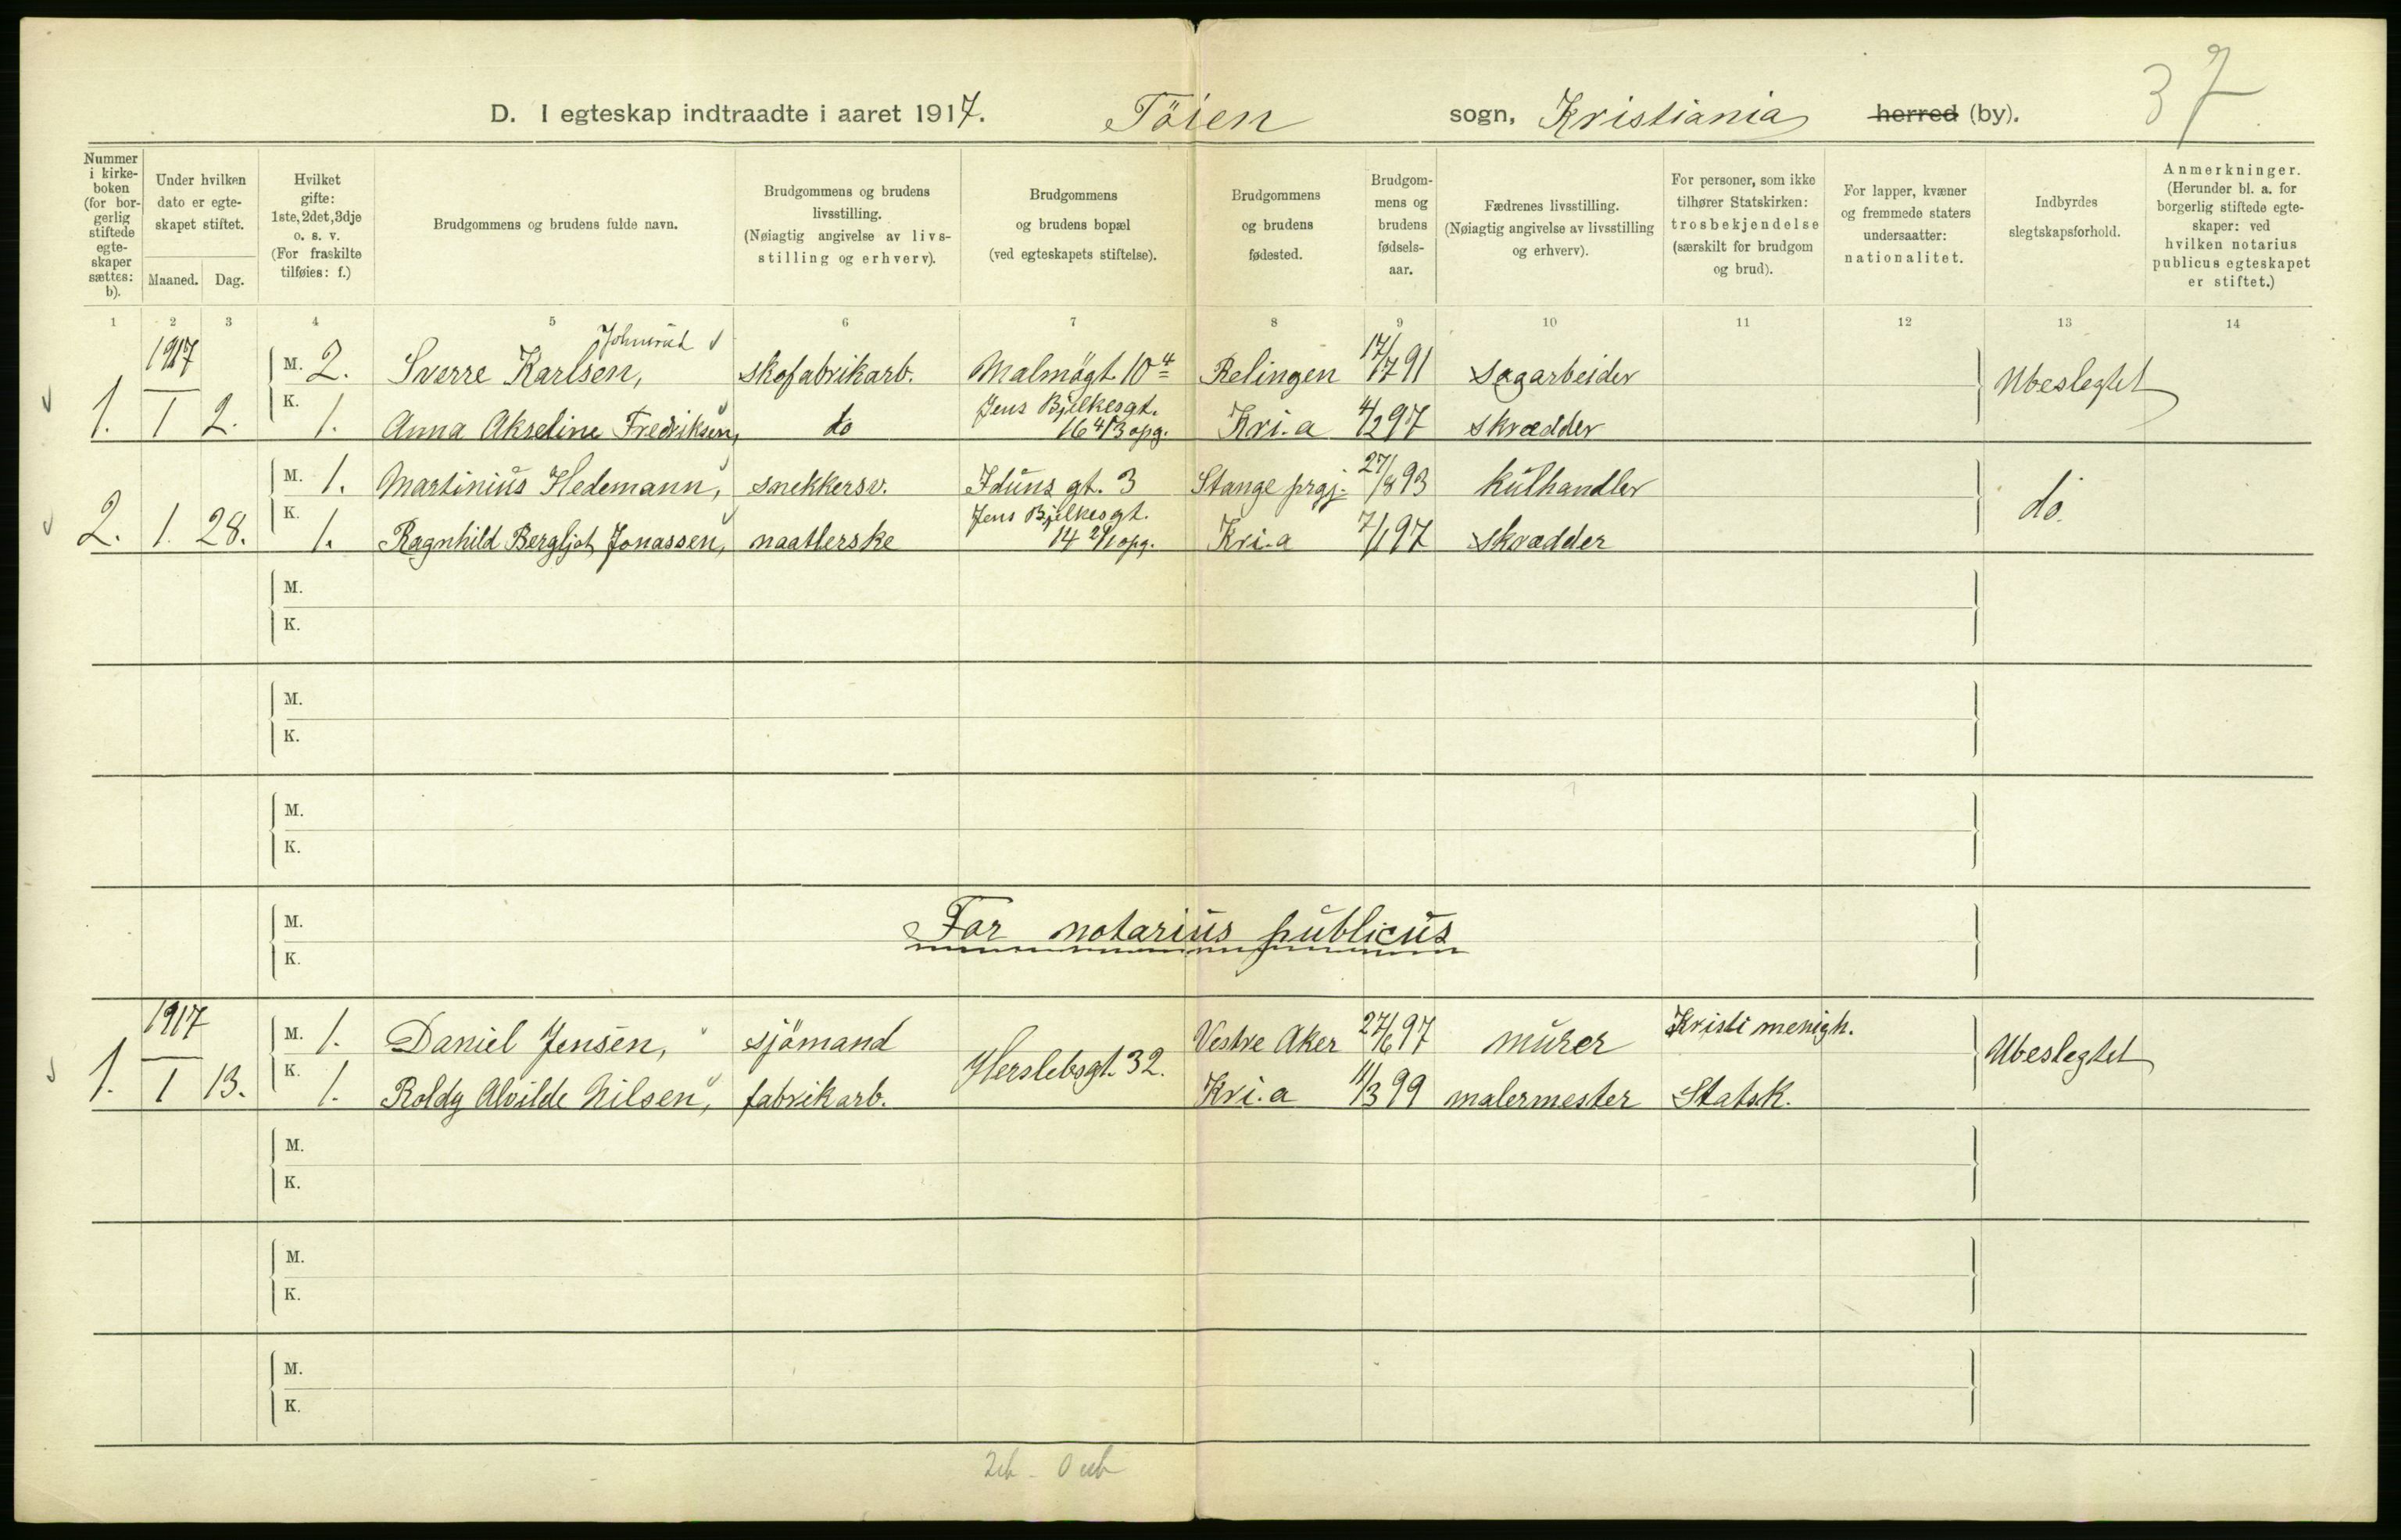 37
D. I egteskap indtraadte i aaret 1917. Töien sogn, Kristiania herred (by).
Nummer i kirke-boken (for bor-gerlig stiftede egte-skaper sættes: b).
Under hvilken dato er egte-skapet stiftet.
Maaned. Dag.
Hvilket gifte: 1ste, 2det, 3dje o. s. v. (For fraskilte tilføies: f.)
Brudgommens og brudens fulde navn.
Brudgommens og brudens livsstilling. (Nøiagtig angivelse av livs-stilling og erhverv).
Brudgommens og brudens bopæl (ved egteskapets stiftelse).
Brudgommens og brudens fødested.
Brudgom-mens og brudens fødsels-aar.
Fædrenes livsstilling. (Nøiagtig angivelse av livsstilling og erhverv).
For personer, som ikke tilhører Statskirken: trosbekjendelse (særskilt for brudgom og brud).
For lapper, kvæner og fremmede staters undersaatter: nationalitet.
Indbyrdes slegtskapsforhold.
Anmerkninger. (Herunder bl. a. for borgerlig stiftede egte-skaper: ved hvilken notarius publicus egteskapet er stiftet.)
1 2 3 4 5 6 7 8 9 10 11 12 13 14
1917
M. 2. Sverre Karlsen, skofabrikarb. Malmögt. 10⁴ Relingen 17/7 91 Sagarbeider Ubeslegtet
1. I 2. K. 1. Anna Akseline Fredriksen, do Jens Bjelkesgt. 16 4/3 opg. Kri.a 4/2 97 skrædder
M. 1. Martinius Hedemann, snekkersv. Iduns gt. 3 Stange prgj. 27/8 93 kulhandler do.
2. 1. 28. K. 1. Ragnhild Bergljot Jonassen, naatlerske Jens Bjelkesgt. 14 2/1 opg. Kri.a 7/1 97 Skrædder
M.
K.
M.
K.
M.
K.
M.
For notarius publicus
K.
1917
M. 1. Daniel Jensen, sjömand Herslebsgt. 32. Vestre Aker 27/6 97 murer Kristi menigh. Ubeslegtet
1. I 13. K. 1. Roldy Alvilde Nilsen, fabrikarb. Kri.a 11/3 99 malermester Statsk.
M.
K.
M.
K.
M.
K.